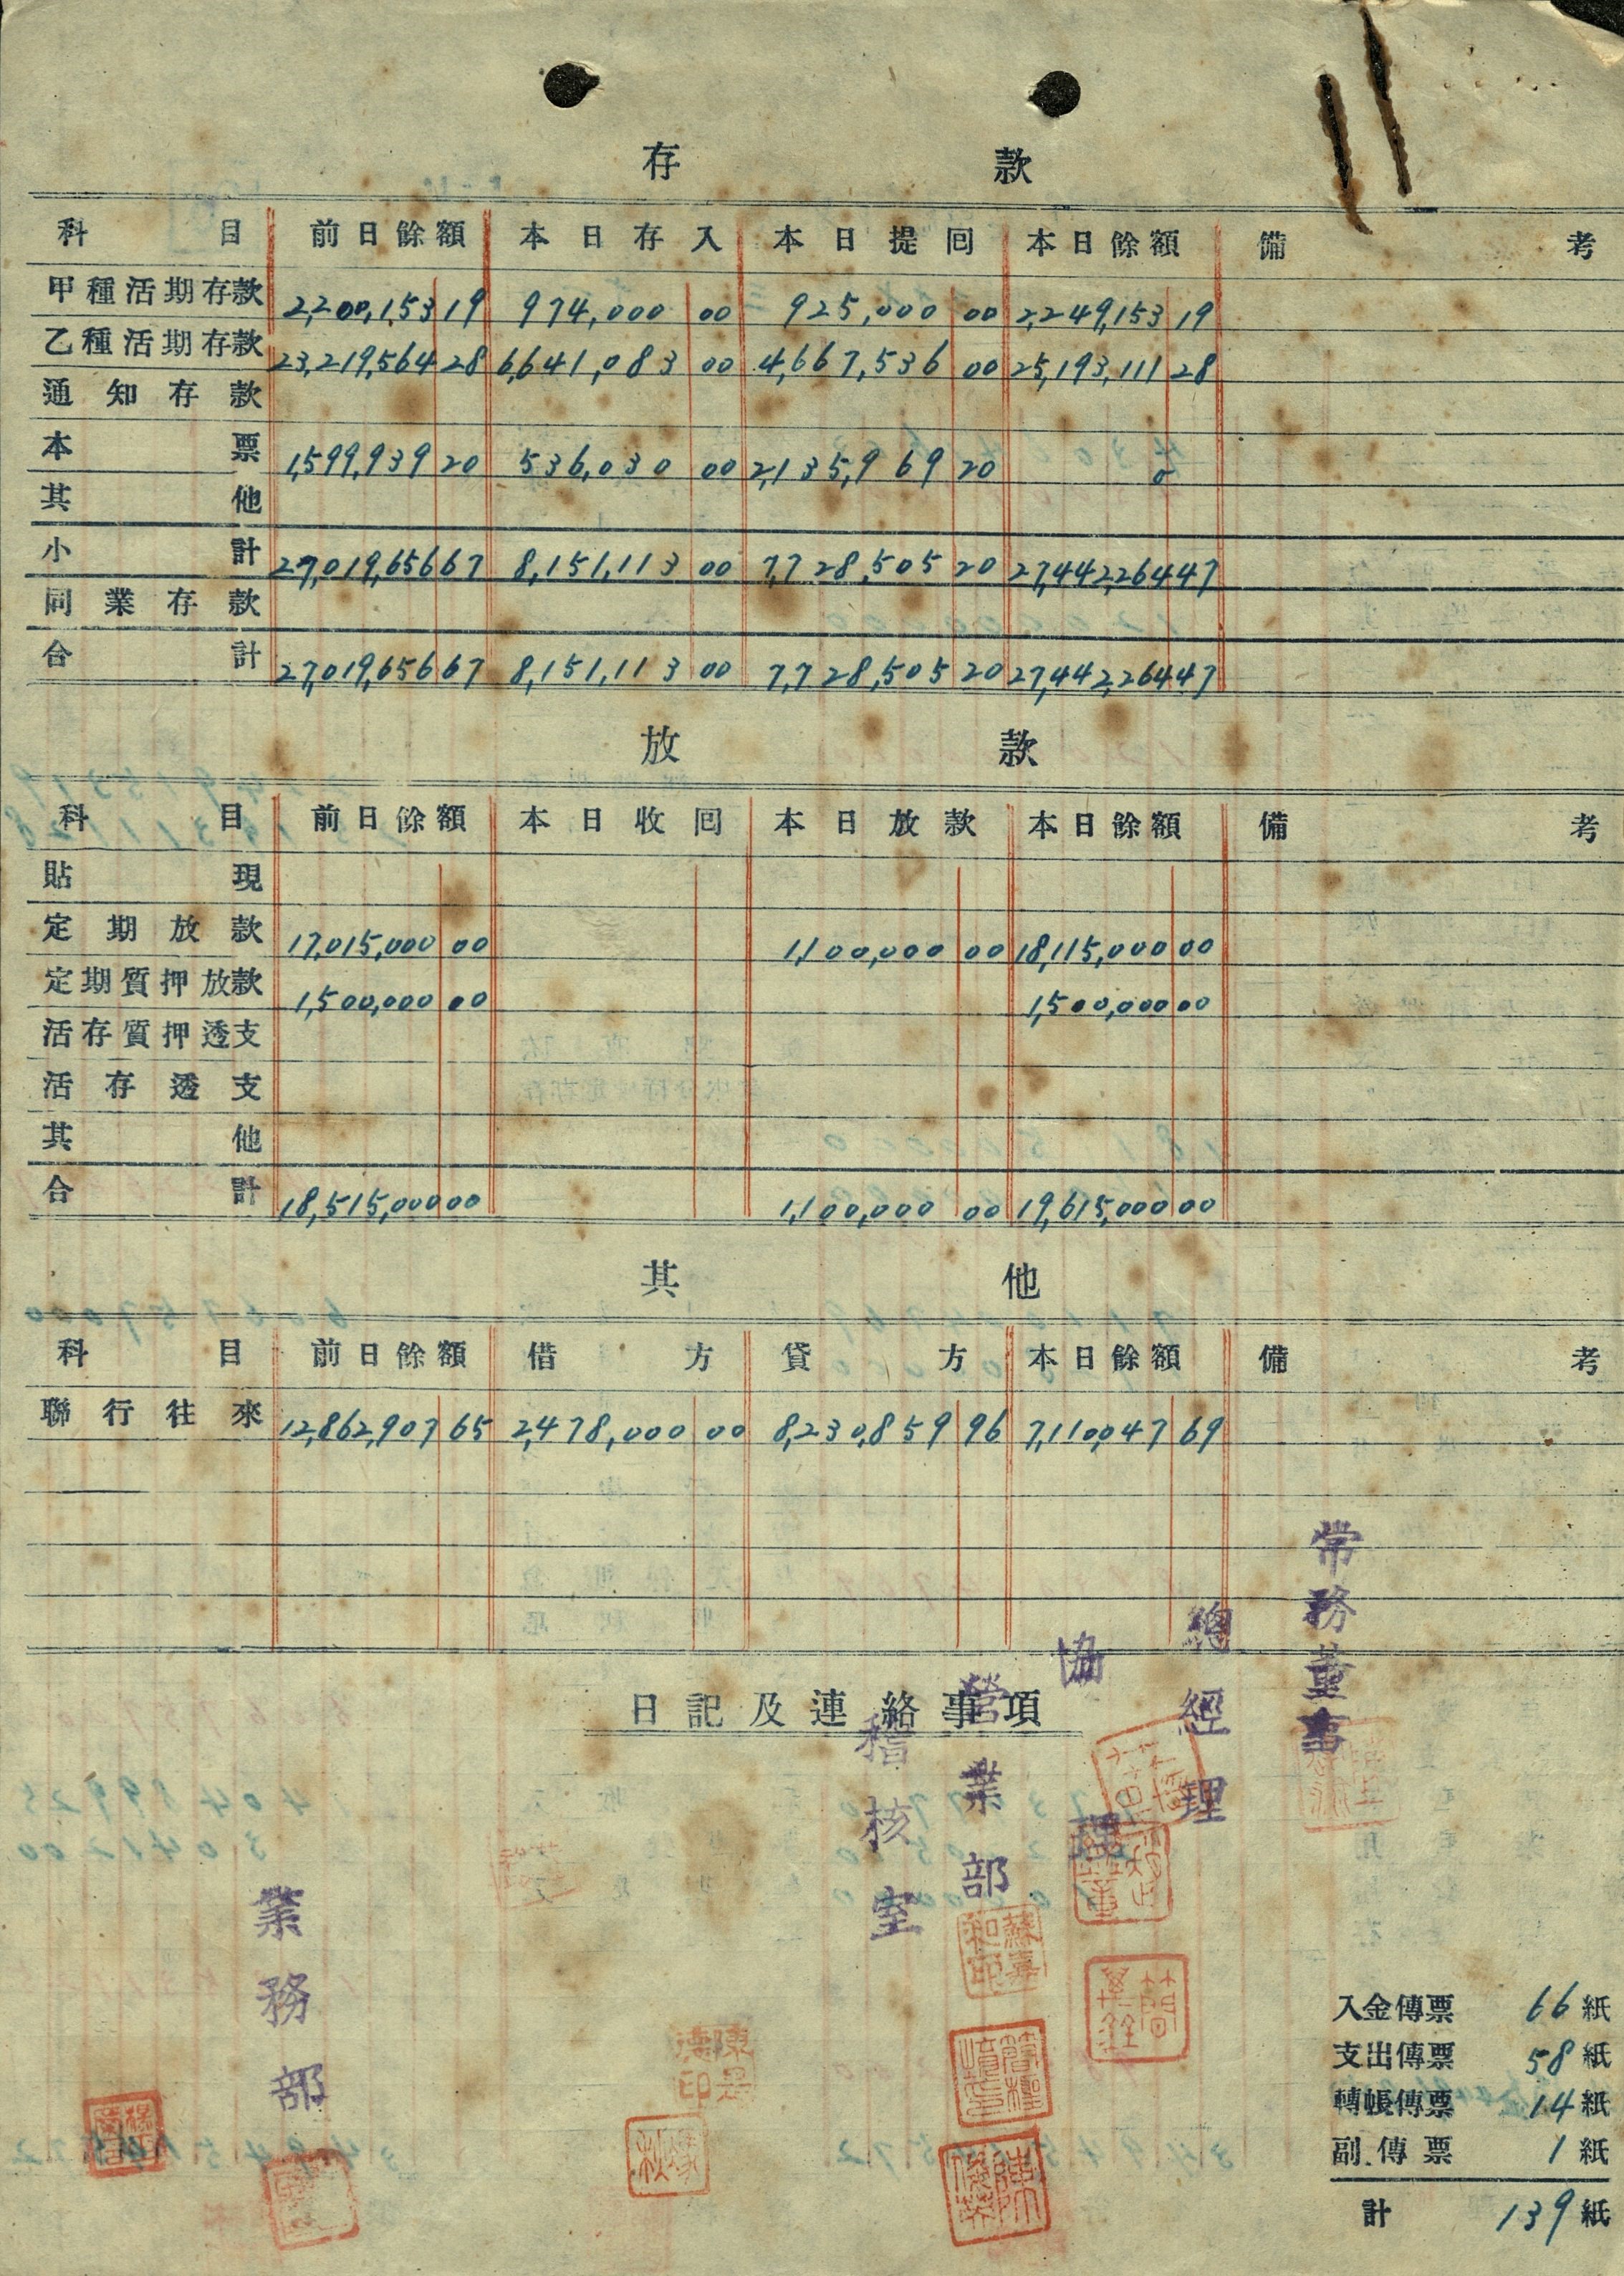 存款
科目 前日餘額 本日存入 本日提囘 本日餘額 備考
甲種活期存款 2,200,153 19 974,000 00 925,000 00 2,249,153 19
乙種活期存款 23,219,564 28 6,641,083 00 4,667,536 00 25,193,111 28
通知存款
本票 1,599,939 20 536,030 00 2,135,969 20 0
其他
小計 27,019,656 67 8,151,113 00 7,728,505 20 27,442,264 47
同業存款
合計 27,019,656 67 8,151,113 00 7,728,505 20 27,442,264 47
放款
科目 前日餘額 本日收囘 本日放款 本日餘額 備考
貼現
定期放款 17,015,000 00 1,100,000 00 18,115,000 00
定期質押放款 1,500,000 00 1,500,000 00
活存質押透支
活存透支
其他
合計 18,515,000 00 1,100,000 00 19,615,000 00
其他
科目 前日餘額 借方 貸方 本日餘額 備考
聯行往來 12,862,907 65 2,478,000 00 8,230,859 96 7,110,047 69
日記及連絡事項
常務董事
總經理
協理
營業部
稽核室
業務部
入金傳票 66紙
支出傳票 58紙
轉帳傳票 14紙
副傳票 1紙
計 139紙